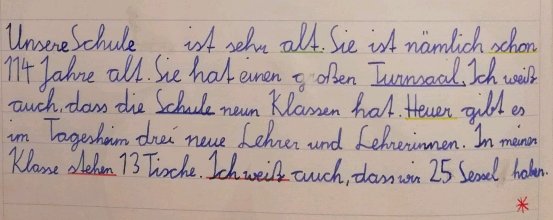 Unsere Schule ist sehr alt. Sie ist nämlich schon
114 Jahre alt. Sie hat einen großen Turnsaal. Ich weiß
auch, dass die Schule neun Klassen hat. Heuer gibt es
im Tagesheim drei neue Lehrer und Lehrerinnen. In meiner
Klasse stehen 13 Tische. Ich weiß auch, dass wir 25 Sessel haben.